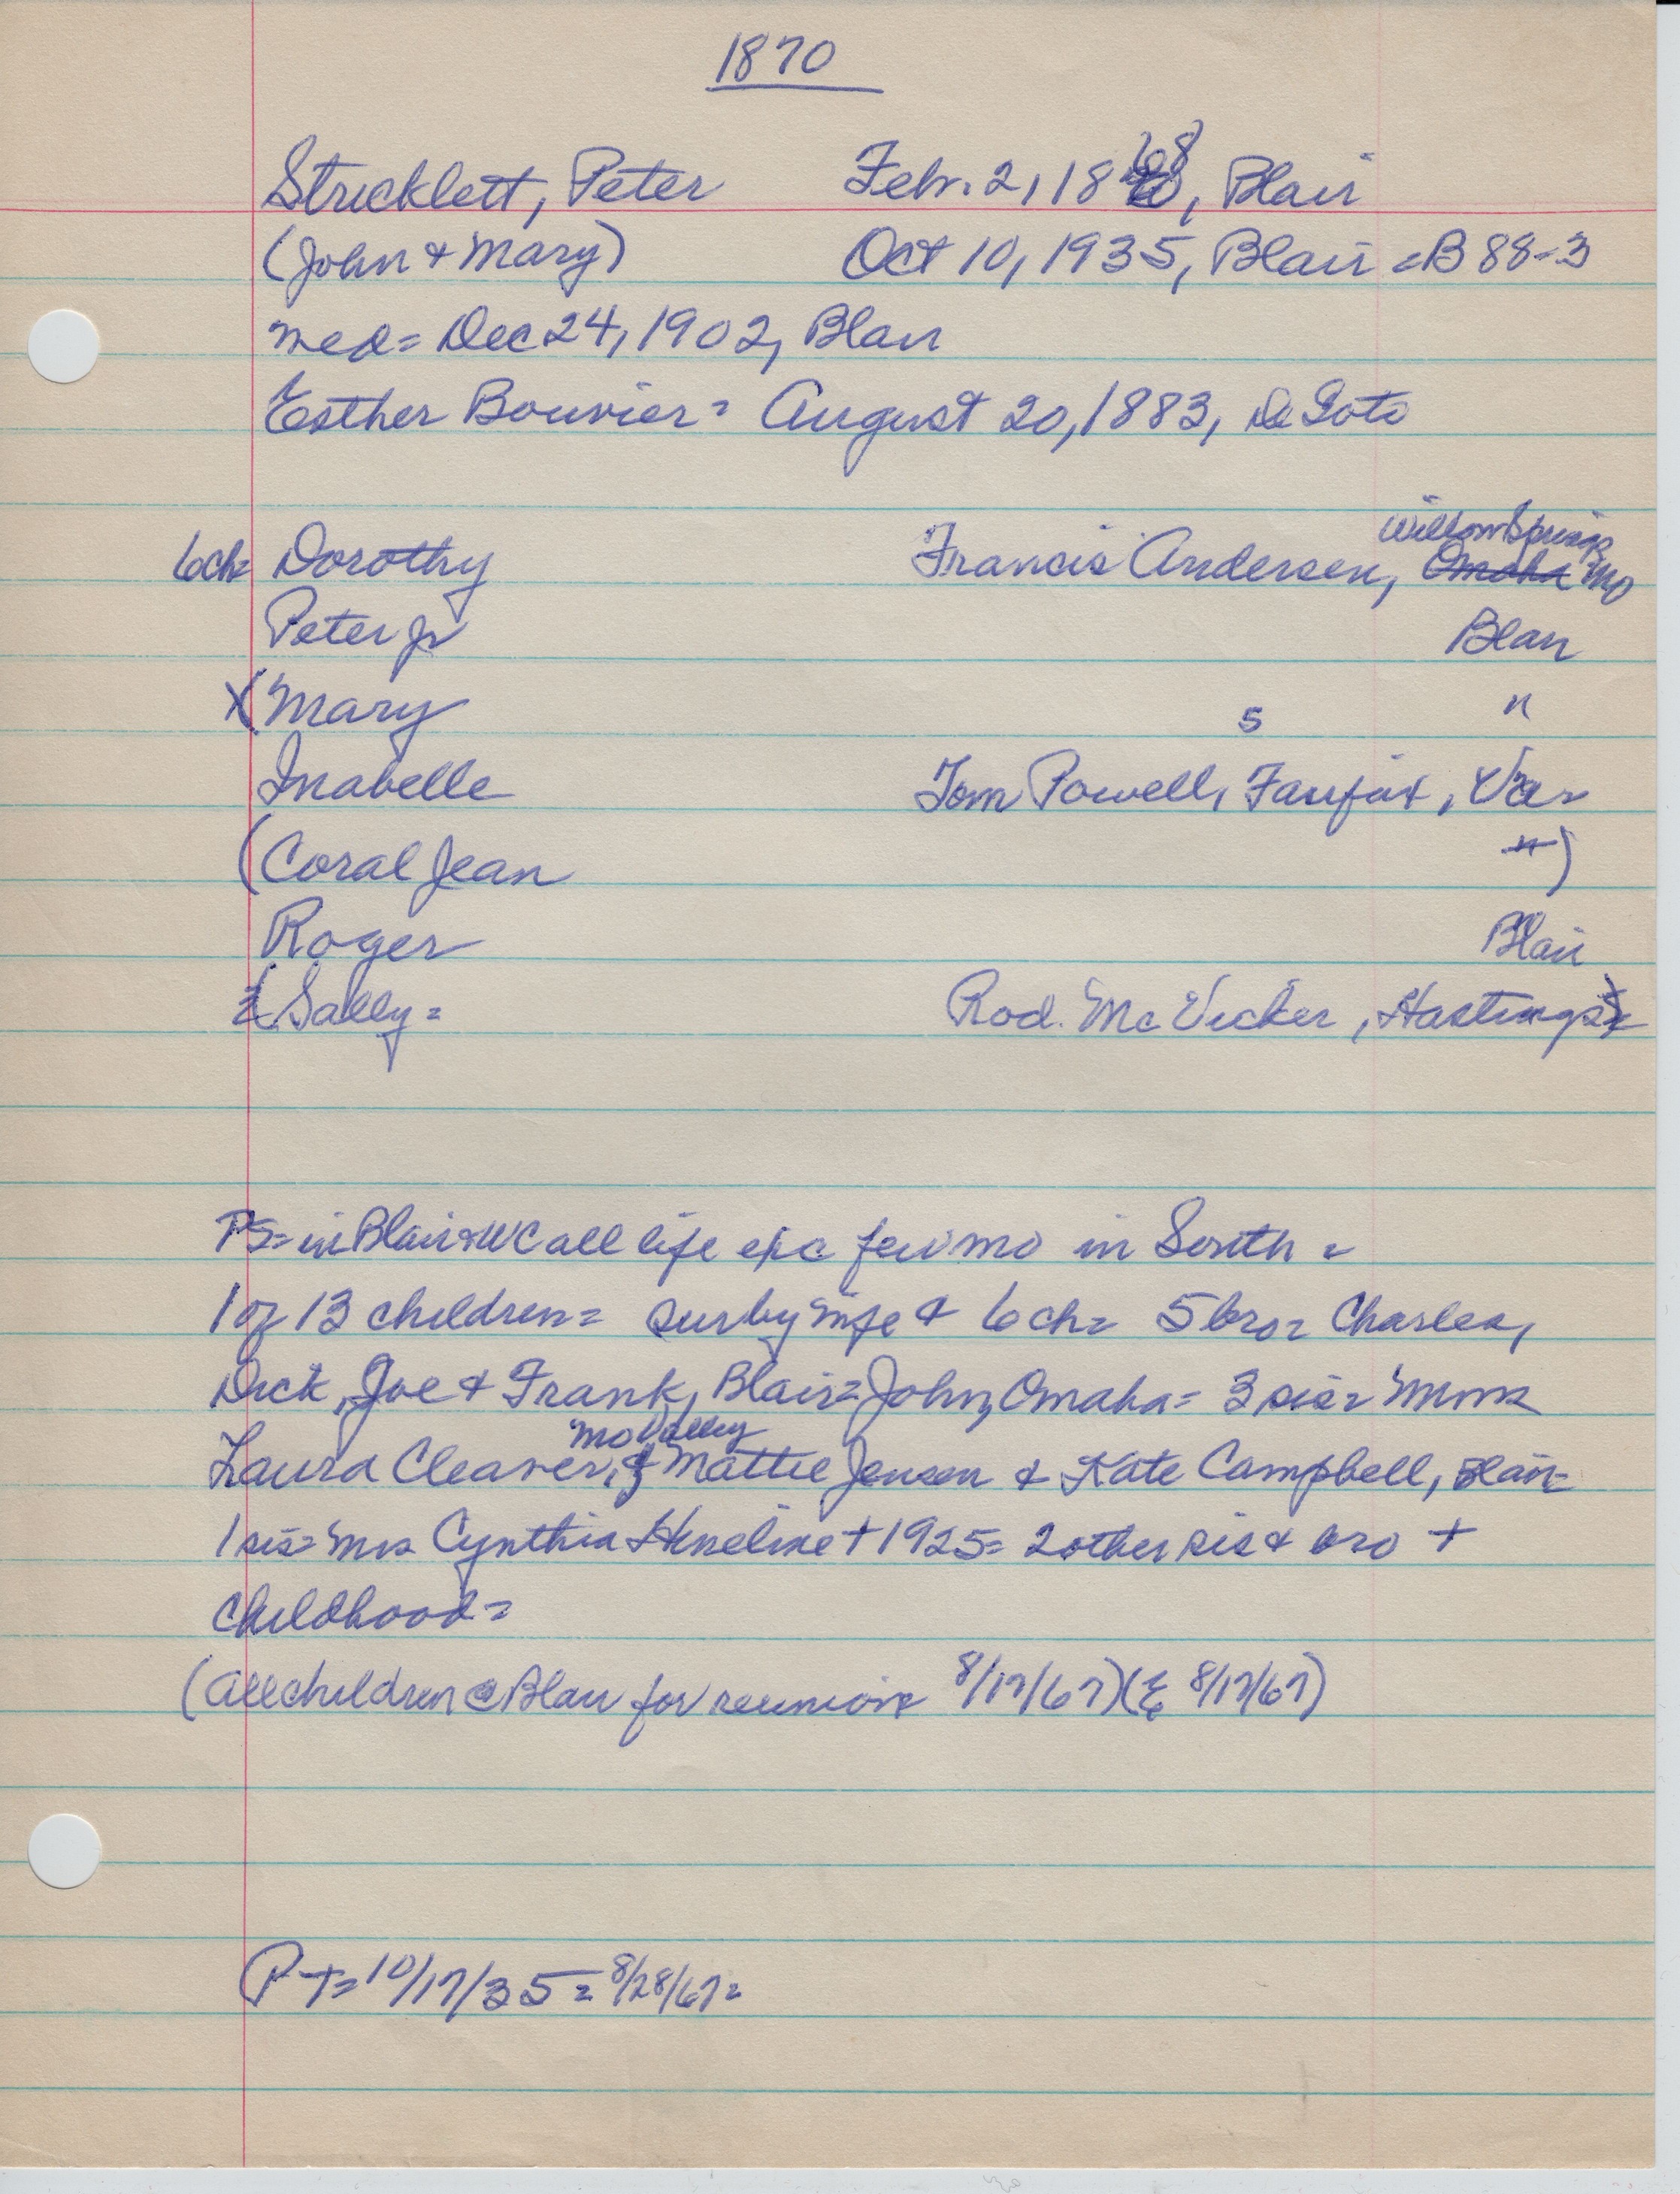 1870
Stricklett, Peter Feb. 2, 1868, Blair
(John & Mary) Oct 10, 1935, Blair = B 88-3
med = Dec 24, 1902, Blair
Esther Bouvier = August 20, 1883, De Soto
Willow Springs
6ch = Dorothy Francis Andersen, Omaha Mo
Peter Jr Blair
X(Mary s "
Inabelle Tom Powell, Fairfax, Va =
(Coral Jean ")
Roger Blair
(Sally = Rod. McVicker, Hastings)
PS = in Blair & WC all life exc few mo in South =
1 of 13 children = sur by wife & 6 ch = 5 bro = Charles,
Dick, Joe & Frank, Blair = John, Omaha = 3 sis = Mmes
Mo Valley
Laura Cleaver, & Mattie Jensen & Kate Campbell, Blair =
1 sis = Mrs Cynthia Heneline + 1925 = 2 other sis & bro +
childhood =
(all children @ Blair for reunion 8/17/67) (E 8/17/67)
PT = 10/17/35 = 8/28/67 =